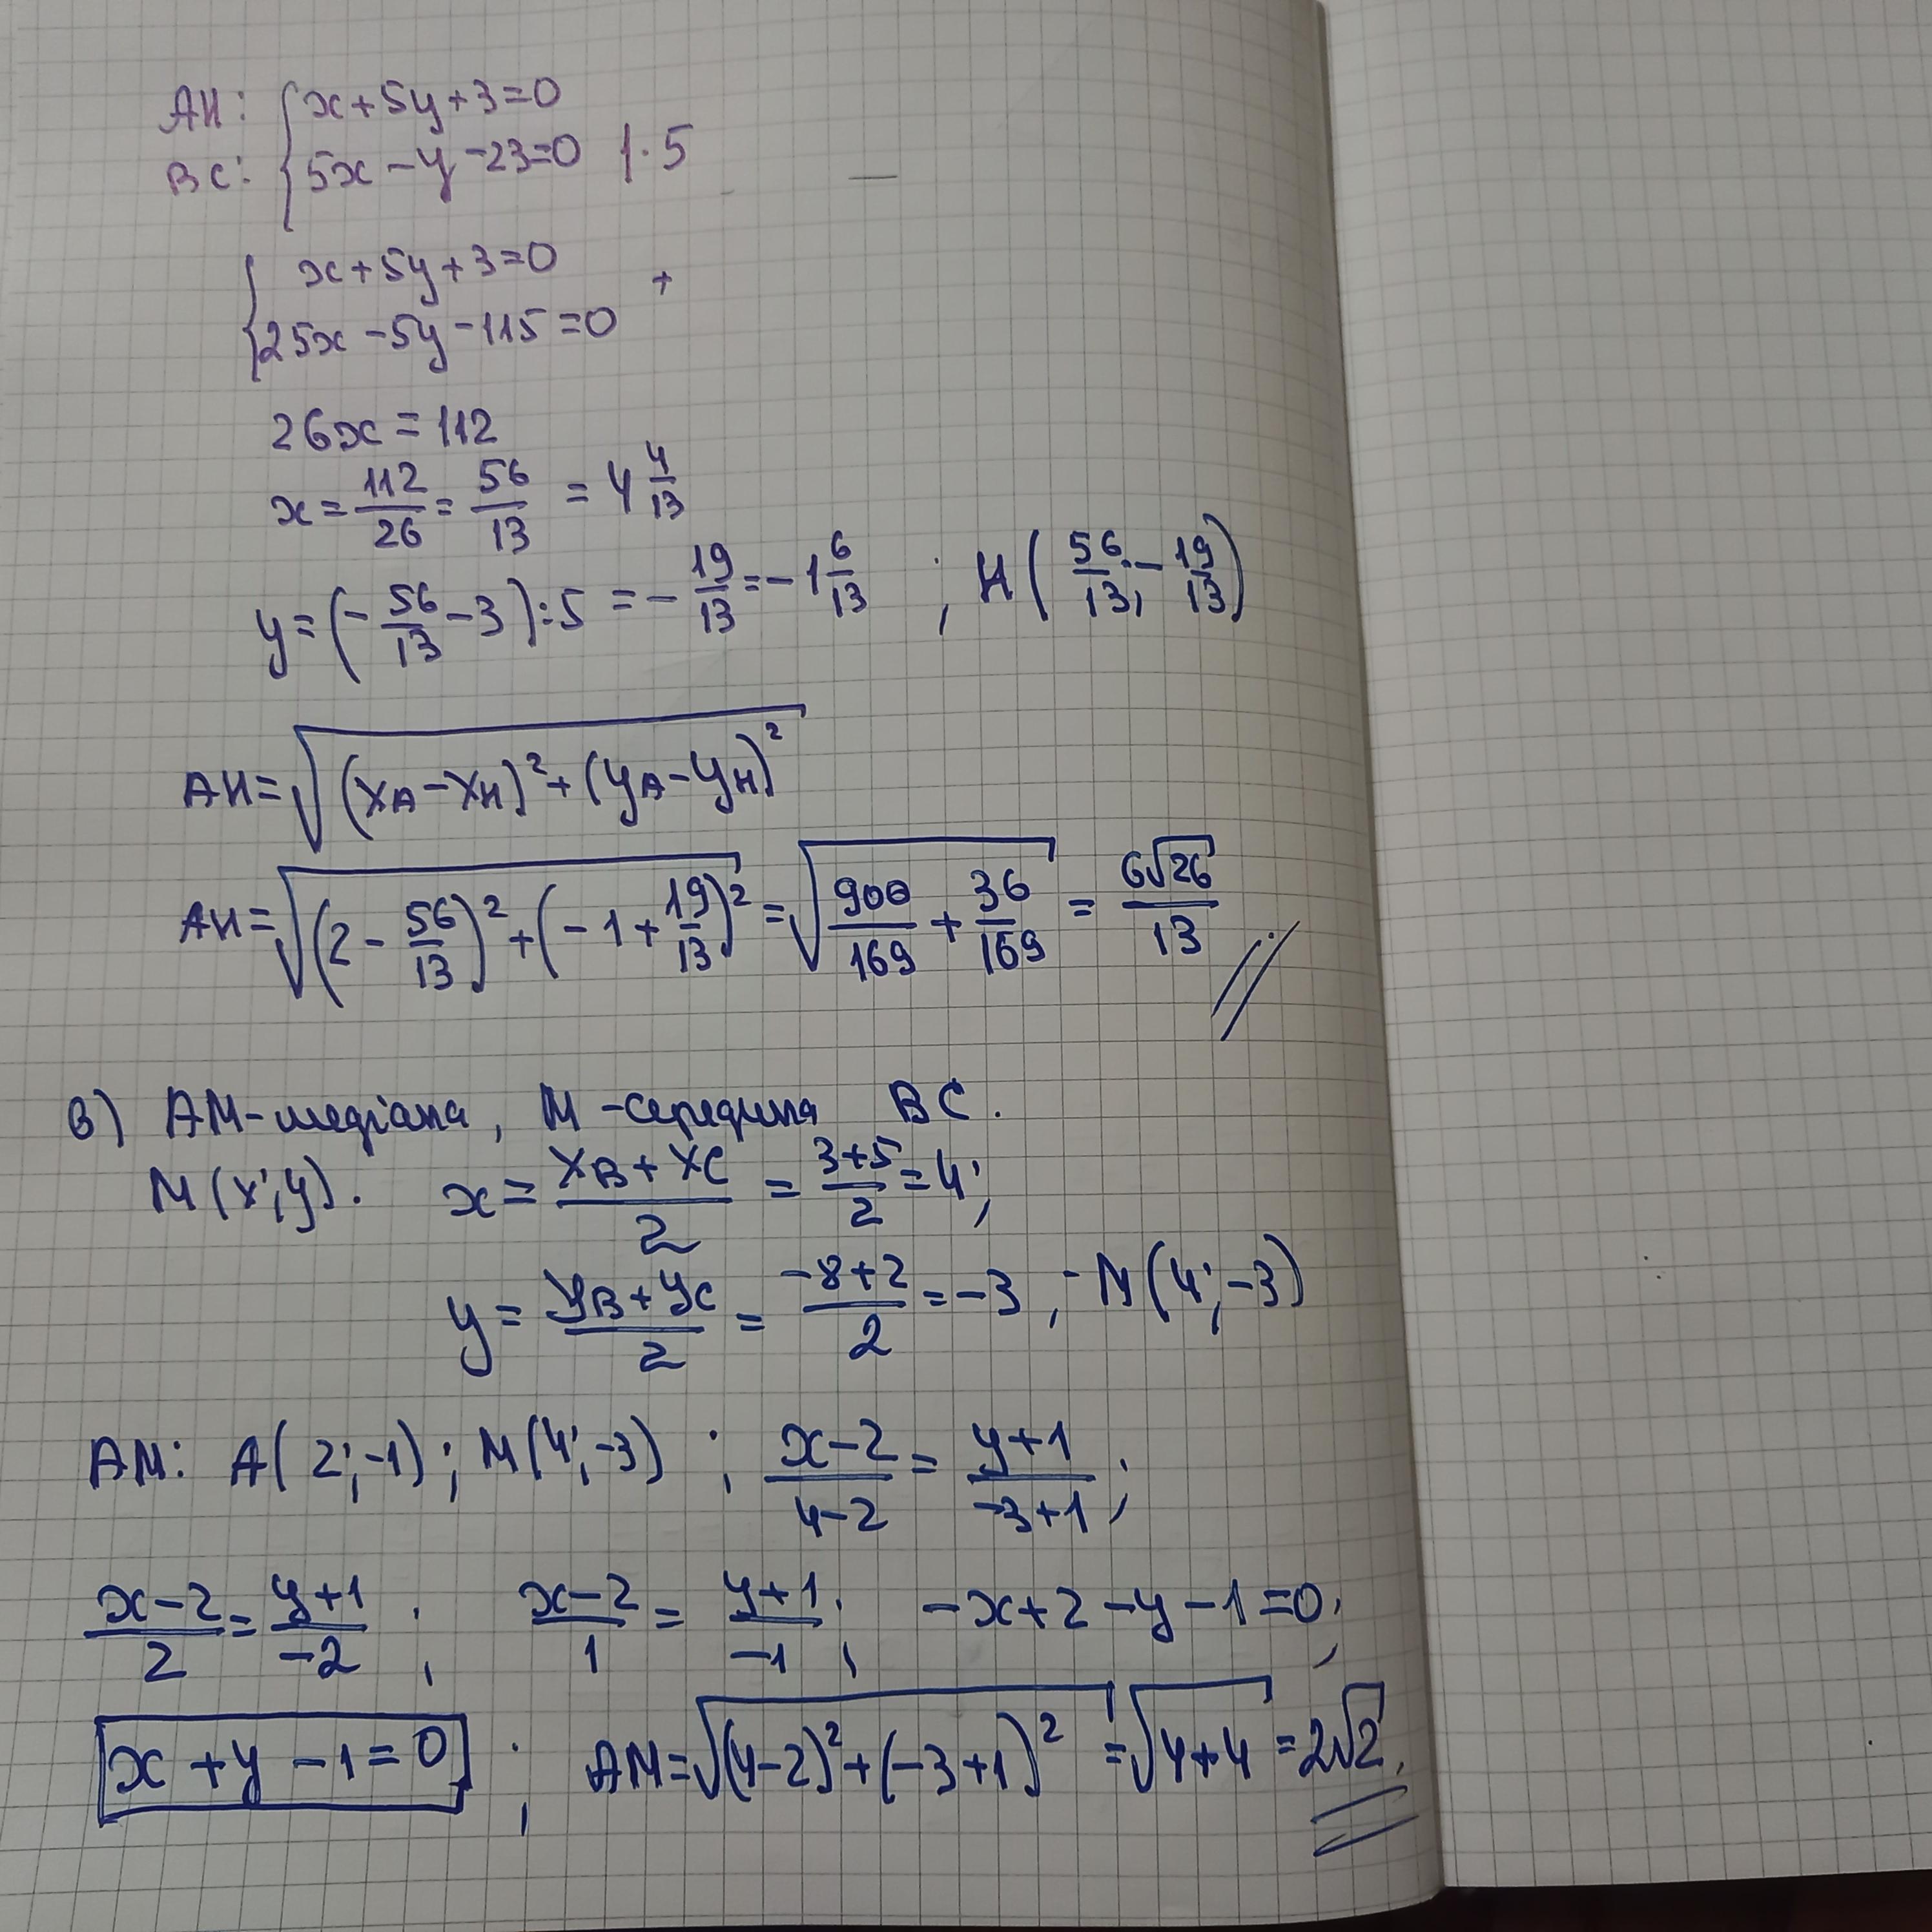 AH: { x+5y+3=0
BC: { 5x-y-23=0 |·5
{ x+5y+3=0 +
{ 25x-5y-115=0
26x=112
x=112/26=56/13=4 4/13
y=(-56/13-3):5=-19/13=-1 6/13; H(56/13;-19/13)
AH=√((xA-xH)²+(yA-yH)²)
AH=√((2-56/13)²+(-1+19/13)²)=√(900/169+36/169)=6√26/13
в) AM-медіана, M-середина BC.
M(x;y). x=(xB+xC)/2=(3+5)/2=4;
y=(yB+yC)/2=(-8+2)/2=-3; -M(4;-3)
AM: A(2;-1); M(4;-3); (x-2)/(4-2)=(y+1)/(-3+1);
(x-2)/2=(y+1)/-2; (x-2)/1=(y+1)/-1; -x+2-y-1=0;
x+y-1=0; AM=√((4-2)²+(-3+1)²)=√(4+4)=2√2.